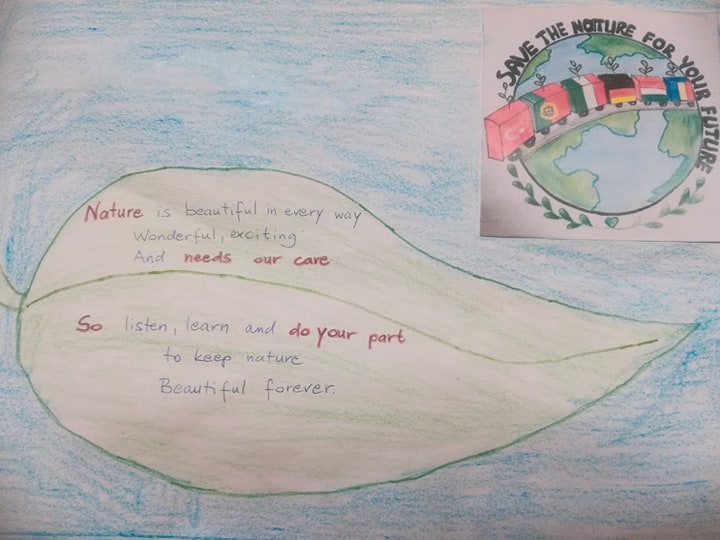 SAVE THE NATURE FOR YOUR FUTURE
Nature is beautiful in every way
Wonderful, exciting
And needs our care
So listen, learn and do your part
to keep nature
Beautiful forever.